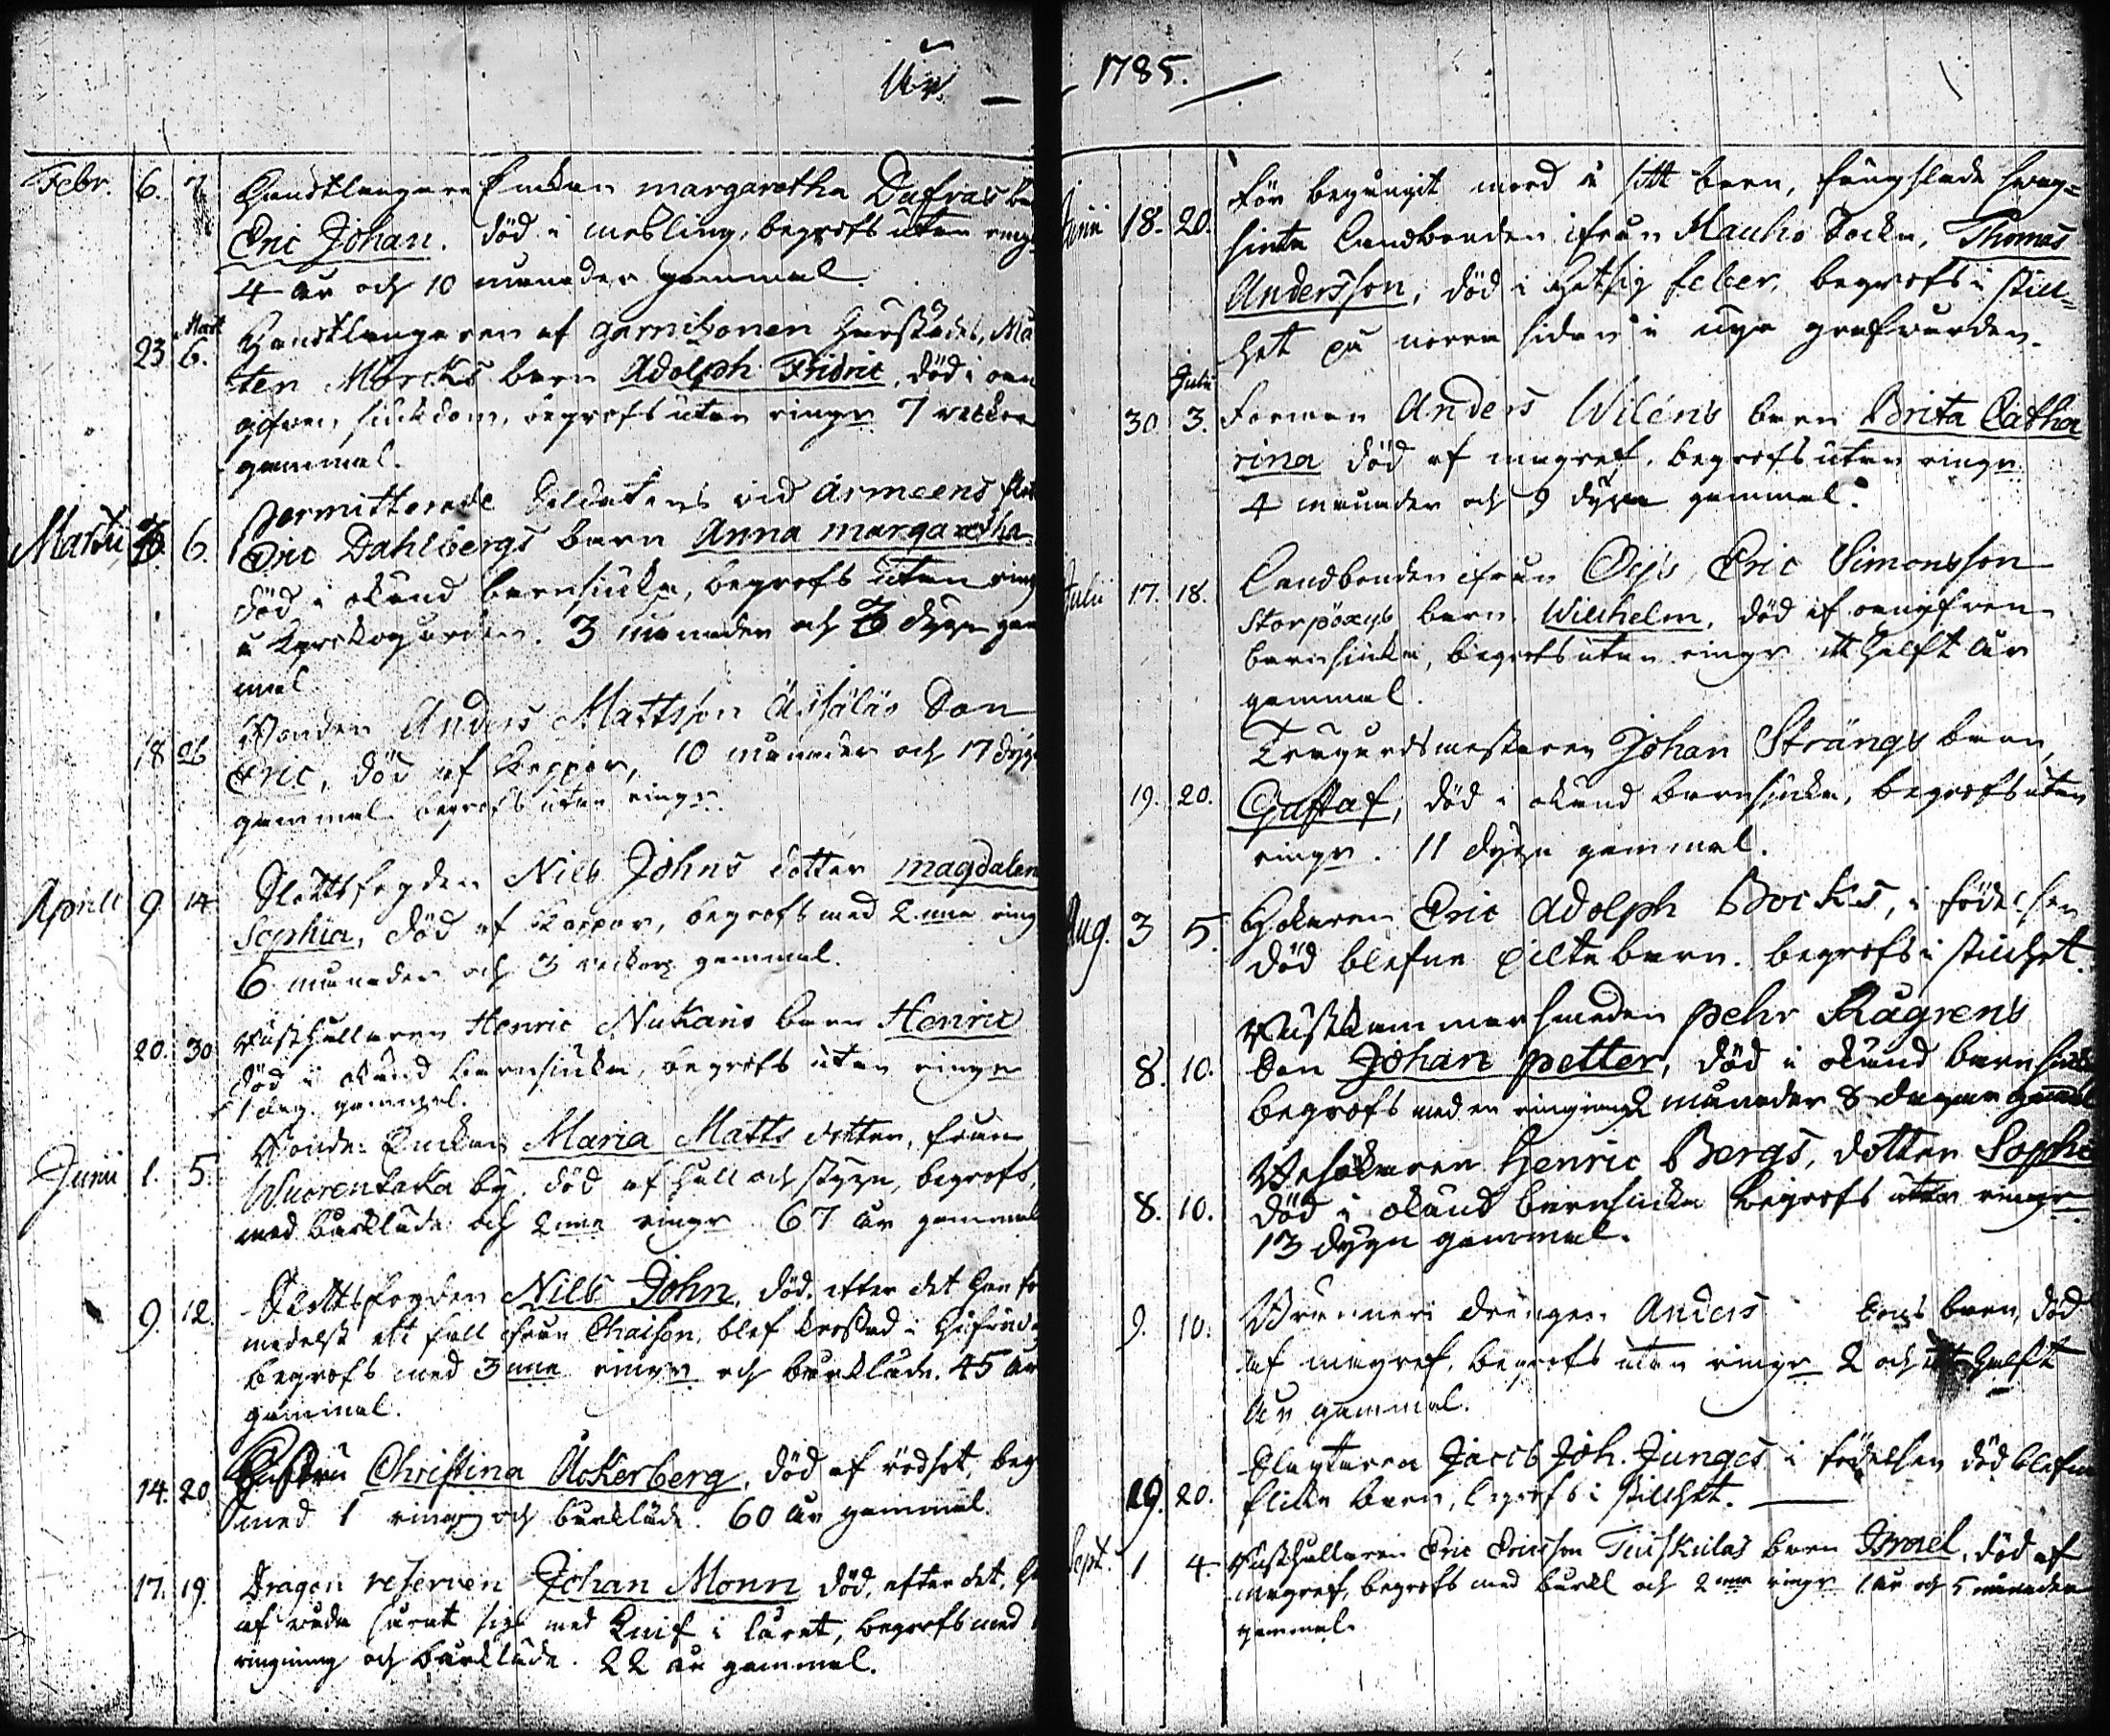 År
Febr. 6. 7 Handtlangare Enkan margaretha Dufras
Eric Johan. död i mesling, begrofs utan
4 år och 10 månader gammal.
Mart
23 6. Handtlangaren af garnizonen
ten Mörcks barn Adolph Fridric, död i
sjukdom, begrofs utan ringn 7 veckor
gammal.
permitterade Soldatens vid armeens
Martii 6. Eric Dahlbergs barn Anna margaretha
död i okänd barnsjuka, begrofs utan
å Kyrkogården. 3 månader och dygn
mal
Bonden Anders Mattsson Son
18 26 Eric, död af koppor, 10 månader och 17 dygn
gammal begrofs utan ringn.
Slottsfogden Nils Johns dotter magdalen
Aprill 9. 14 Sophia, död af koppor, begrofs med 2 nne
6 månader och 3 veckor gammal.
20. 30 Wasthullaren Henric Nukaris barn Henric
död i okänd barnsjuka, begrofs utan ringn
1 dag gammal.
Bonde Enckan Maria Matts dotter, från
Junii 1. 5. Wuorentaka by, död af håll och styng, begrofs,
med bårkläde och 2 nne ringn 67 år gammal
Slottsfogden Nils John, död, efter det han
9. 12. medelst ett fall ifrån Chaisen, blef krossad i hufvud
begrofs med 3 nne ringn och bårkläde. 45 år
gammal.
Christina Åckerberg, död af rödsot,
14. 20 med 1 ringn och bårkläde. 60 år gammal
17. 19. Dragon reserven Johan Monn död, efter det,
af våda skurit sig med knif i låret, begrofs med
ringning och bårkläde. 22 år gammal.
1785.
för begångit mord å sitt barn, fängslade
Junii 18. 20. sinta Landbonden ifrån Hauho Sockn, Thomas
Andersson, död i hetsig feber, begrofs i still-
het på norra sidan å nya grafvården.
Julii
30. 3. Forman Anders Wiléns barn Brita Catha
rina död af magref, begrofs utan ringn
4 månader och 9 dygn gammal.
Landbonden ifrån Ojs, Eric Simonsson
Julii 17. 18. barn Willhelm, död af
barnsjuka, begrofs utan ringn ett halft år
gammal.
Johan Strängs barn,
19. 20. Gustaf, död i okänd barnsjuka, begrofs utan
ringn. 11 dygn gammal.
Aug. 3 5. Hökaren Eric Adolph Bocks, i födelsen
död blefne Piltebarn. begrofs i stillhet.
Rustkammarsmeden pehr Rågrens
8. 10. Son Johan petter, död i okänd barnsjuka
begrofs med en ringning 2 månader 8 dagar gammal
Besökaren Henric Bergs, dotter Sophia
8. 10. död i okänd barnsjuka begrofs utan ringn
13 dygn gammal.
9. 10. Brännerie drängen Anders barn, död
af magref, begrofs utan ringn 2 och ett halft
år gammal.
Slagtaren Jacob Joh. Junges i födelsen död blefne
19. 20. flicke barn, begrofs i stillhet.
Sept. 1 4. Rusthållaren Eric Ericsson Tuiskulas barn Israel, död af
magref, begrofs med bårkl och 2 nne ringn 1 år och 5 månader
gammal.